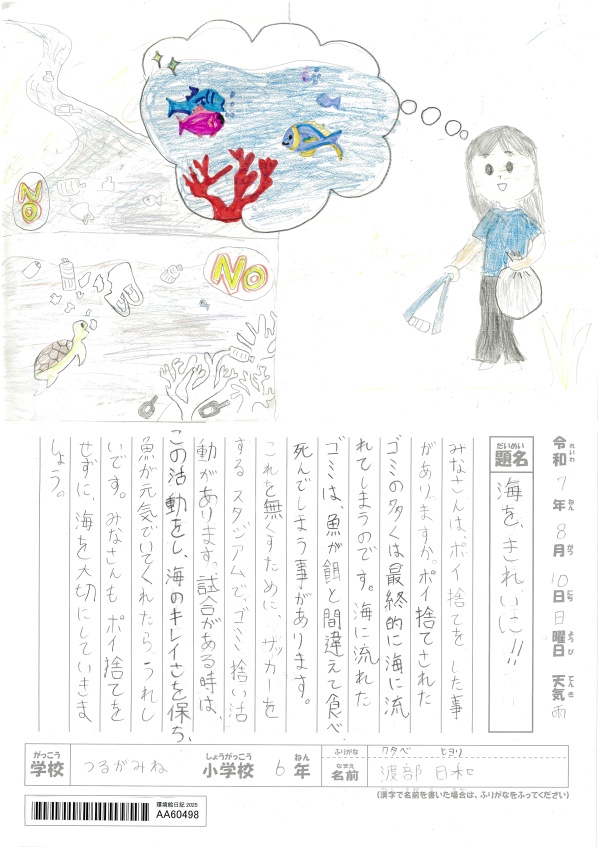 NO
NO
令和7年8月10日日曜日 天気雨
れいわ ねん がつ にち よう び てん き
だいめい
題名
海を、きれいに!!
みなさんは、ポイ捨てをした事
がありますか。ポイ捨てされた
ゴミの多くは最終的に海に流
れてしまうのです。海に流れた
ゴミは、魚が餌と間違えて食べ、
死んでしまう事があります。
これを無くすために、サッカーを
するスタジアムで、ゴミ捨い活
動があります。試合がある時は、
この活動をし、海のキレイさを保ち、
魚が元気でいてくれたらうれし
いです。みなさんもポイ捨てを
せずに、海を大切にしていきま
しょう。
がっこう
学校
つるがみね
しょうがっこう
小学校
6
ねん
年
ふりがな
ワタベ ヒヨリ
なまえ
名前
渡部 日和
(漢字で名前を書いた場合は、ふりがなをふってください)
環境絵日記 2025
AA60498